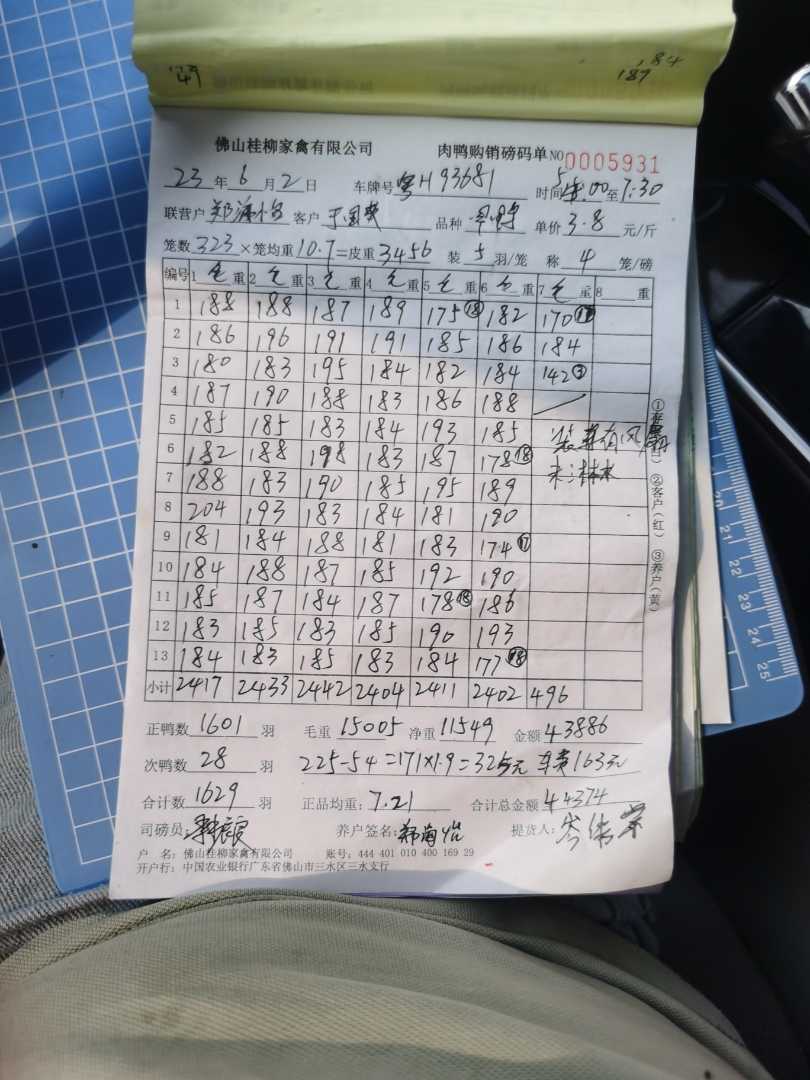 49
184
187
佛山桂柳家禽有限公司 肉鸭购销磅码单 NO 0005931
23 年 6 月 2 日 车牌号 粤H93681 时间 5:00 至 7:30
联营户 郑海怡 客户 品种 单价 3.8 元/斤
笼数 323 ×笼均重 10.7 =皮重 3456 装 5 羽/笼 称 4 笼/磅
编号 1 毛 重 2 毛 重 3 毛 重 4 毛 重 5 毛 重 6 毛 重 7 毛 重 8 重
1 188 188 187 189 175⑱ 182 170⑰
2 186 196 191 191 185 186 184
3 180 183 195 184 182 184 142③
4 187 190 188 183 186 188
5 185 185 183 184 193 185 装车有风扇
6 182 188 198 183 187 178⑱ 未淋水
7 188 183 190 185 195 189
8 204 193 183 184 181 190
9 181 184 188 181 183 174⑰
10 184 188 187 185 192 190
11 185 187 184 187 178⑱ 186
12 183 185 183 185 190 193
13 184 183 185 183 184 177⑱
小计 2417 2433 2442 2404 2411 2402 496
②客户(红) ③养户(黄)
正鸭数 1601 羽 毛重 15005 净重 11549 金额 43886
次鸭数 28 羽 225-54=171×1.9=325元 车费163元
合计数 1629 羽 正品均重: 7.21 合计总金额 44374
司磅员: 养户签名: 郑海怡 提货人:
户 名: 佛山桂柳家禽有限公司 账号: 444 401 010 400 169 29
开户行: 中国农业银行广东省佛山市三水区三水支行
20
21
22
23
24
25